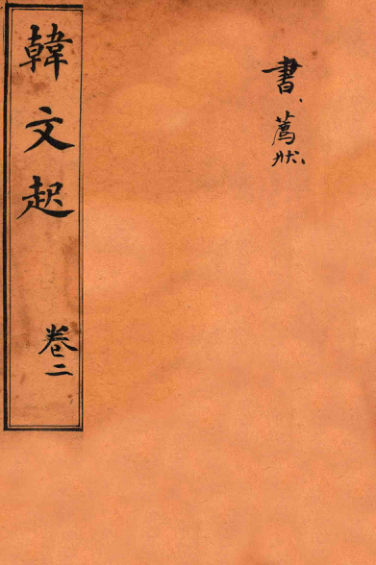 書、
薦狀、
韓文起
卷二